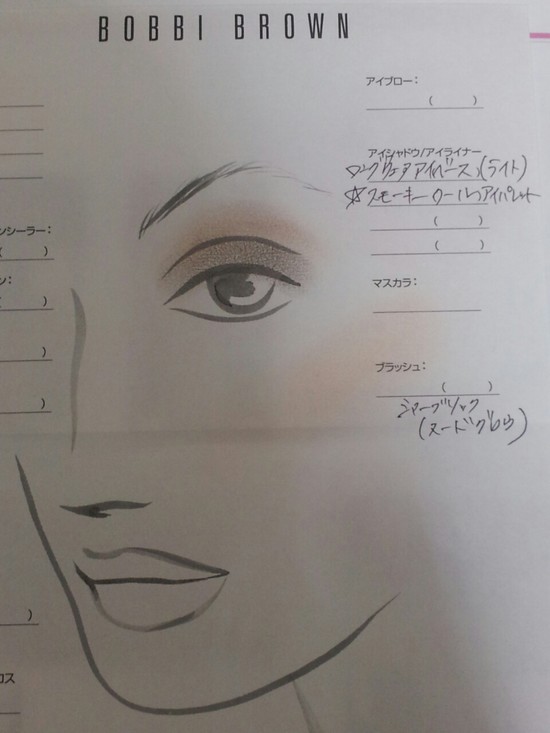 BOBBI BROWN
アイブロー:
(    )
アイシャドウ/アイライナー
ロングウェアアイベース (ライト)
☆スモーキークールアイパレット
(    )
(    )
ンシーラー:
(    )
マスカラ:
ン:
(    )
)
ブラッシュ:
(    )
)
(ヌードグロウ)
)
ロス